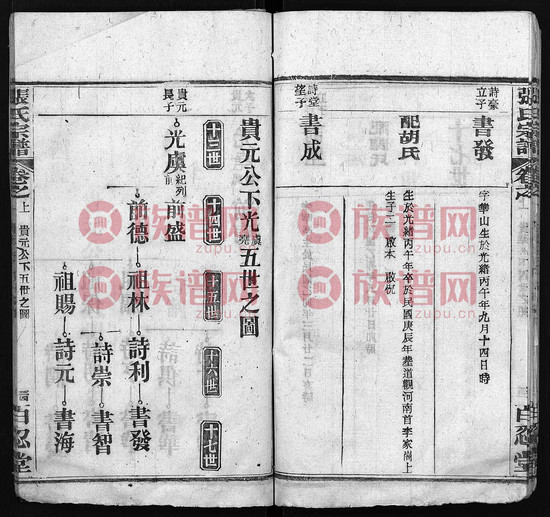 張氏宗譜
卷之
百忍堂
詩豪
立子
書發
字華山生於光緒丙午年九月十四日時
配胡氏
生於光緒丙午年卒於民國庚辰年塟道觀河南首李家崗上
生子二 啟本 啟悅
詩堂
望子
書成
貴元公下光虞五世之圖
十三世
十四世
十五世
十六世
十七世
貴元
長子
光虞 紀列
前盛
前德
祖林
詩利
書發
詩崇
書智
祖賜
詩元
書海
張氏宗譜
卷之
上 貴元公下五世之圖
百忍堂
族谱网
zupu.cn
族谱网
zupu.cn
族谱网
zupu.cn
族谱网
zupu.cn